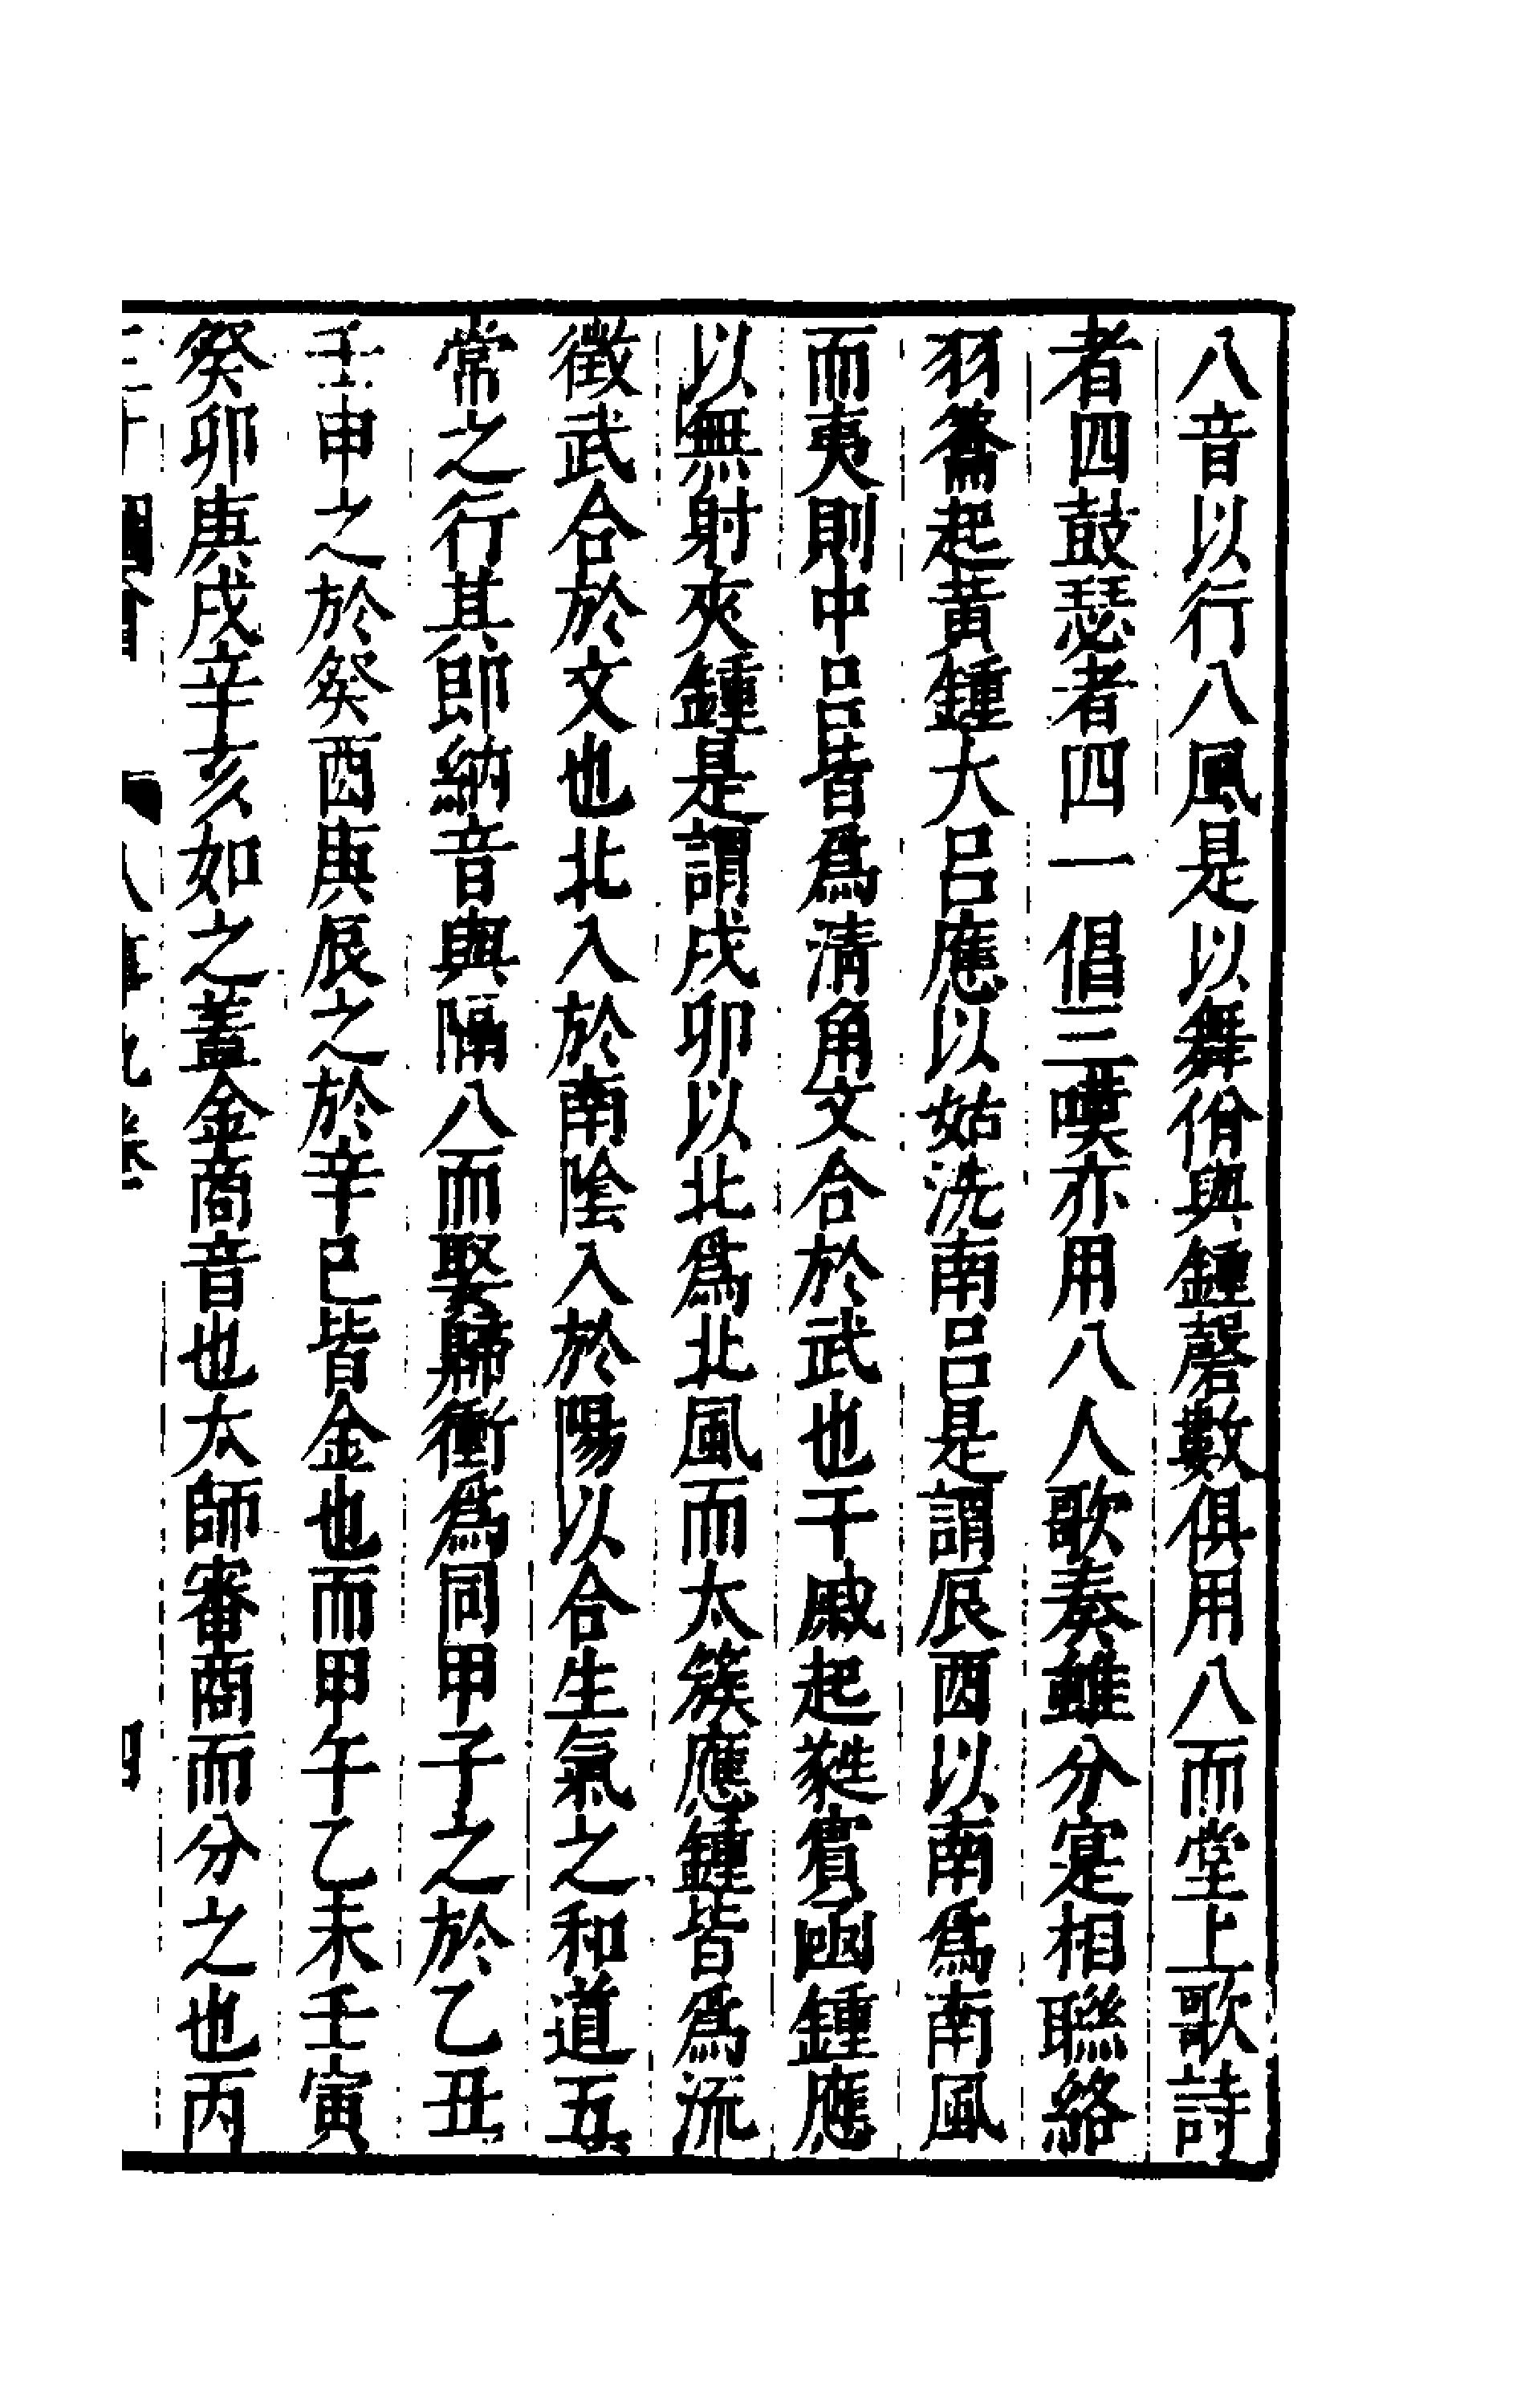 八音以行八風是以舞佾與鍾磬數俱用八而堂上歌詩
者四鼓瑟者四一倡三嘆亦用八人歌奏雖分寔相聯絡
羽籥起黃鍾大呂應以姑洗南呂是謂辰酉以南爲南風
而夷則中呂皆爲清角文合於武也干戚起蕤賓函鍾應
以無射夾鍾是謂戌卯以北爲北風而太簇應鍾皆爲流
徵武合於文也北入於南陰入於陽以合生氣之和道五
常之行其即納音與隔八而娶歸衝爲同甲子之於乙丑
壬申之於癸酉庚辰之於辛巳皆金也而甲午乙未壬寅
癸卯庚戌辛亥如之蓋金商音也太師審商而分之也丙